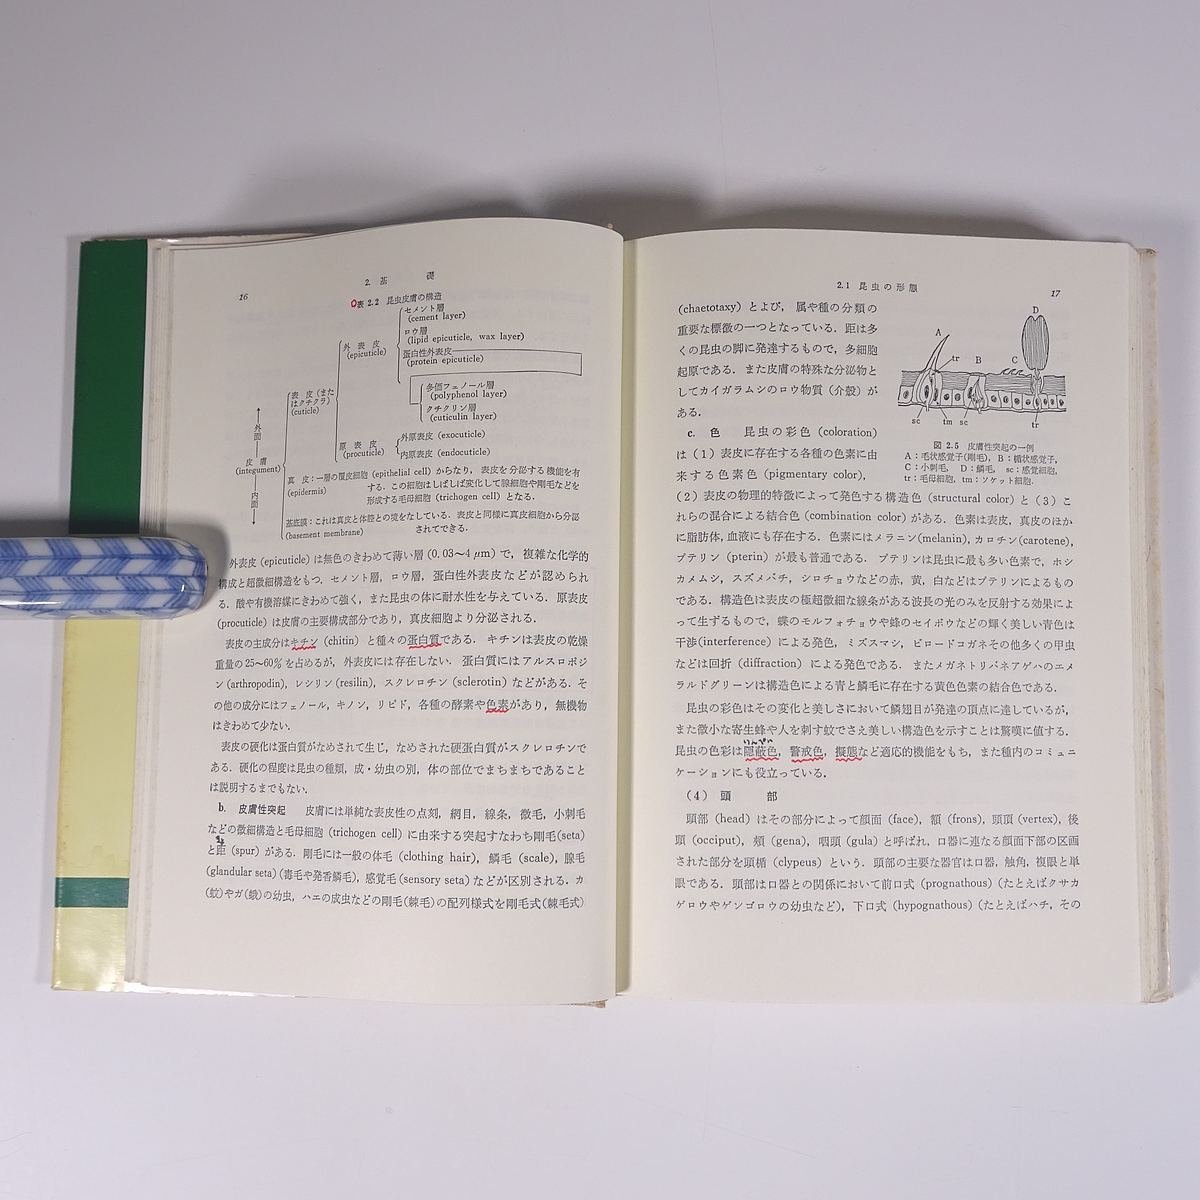 16
2. 基 礎
表 2.2 昆虫皮膚の構造
セメント層
(cement layer)
ロウ層
(lipid epicuticle, wax layer)
外 表 皮
(epicuticle)
蛋白性外表皮
(protein epicuticle)
多価フェノール層
(polyphenol layer)
クチクリン層
(cuticulin layer)
表 皮(また
はクチクラ)
(cuticle)
原 表 皮
(procuticle)
外原表皮 (exocuticle)
内原表皮 (endocuticle)
外面
皮 膚
(integument)
内面
真 皮:一層の覆皮細胞 (epithelial cell) からなり, 表皮を分泌する機能を有
(epidermis)
する. この細胞はしばしば変化して腺細胞や剛毛などを
形成する毛母細胞 (trichogen cell) となる.
基底膜:これは真皮と体腔との境をなしている. 表皮と同様に真皮細胞から分泌
(basement membrane)
されてできる.
外表皮 (epicuticle) は無色のきわめて薄い層 (0.03〜4 μm) で, 複雑な化学的
構成と超微細構造をもつ. セメント層, ロウ層, 蛋白性外表皮などが認められ
る. 酸や有機溶媒にきわめて強く, また昆虫の体に耐水性を与えている. 原表皮
(procuticle) は皮膚の主要構成部分であり, 真皮細胞より分泌される.
表皮の主成分はキチン (chitin) と種々の蛋白質である. キチンは表皮の乾燥
重量の 25〜60% を占めるが, 外表皮には存在しない. 蛋白質にはアルスロポジ
ン (arthropodin), レシリン (resilin), スクレロチン (sclerotin) などがある. そ
の他の成分にはフェノール, キノン, リピド, 各種の酵素や色素があり, 無機物
はきわめて少ない.
表皮の硬化は蛋白質がなめされて生じ, なめされた硬蛋白質がスクレロチンで
ある. 硬化の程度は昆虫の種類, 成・幼虫の別, 体の部位でまちまちであること
は説明するまでもない.
b. 皮膚性突起 皮膚には単純な表皮性の点刻, 網目, 線条, 微毛, 小刺毛
などの微細構造と毛母細胞 (trichogen cell) に由来する突起すなわち剛毛(seta)
と距 (spur) がある. 剛毛には一般の体毛 (clothing hair), 鱗毛 (scale), 腺毛
(glandular seta) (毒毛や発香鱗毛), 感覚毛 (sensory seta) などが区別される. カ
(蚊)やガ(蛾)の幼虫, ハエの成虫などの剛毛(棘毛)の配列様式を剛毛式(棘毛式)
2.1 昆虫の形態
17
(chaetotaxy) とよび, 属や種の分類の
重要な標徴の一つとなっている. 距は多
くの昆虫の脚に発達するもので, 多細胞
起原である. また皮膚の特殊な分泌物と
してカイガラムシのロウ物質 (介殻) が
ある.
A
tr
B
C
D
sc
tm
sc
tr
図 2.5 皮膚性突起の一例
A:毛状感覚子(剛毛), B:楯状感覚子,
C:小刺毛, D:鱗毛, sc:感覚細胞,
tr:毛母細胞, tm:ソケット細胞.
c. 色 昆虫の彩色 (coloration)
は (1) 表皮に存在する各種の色素に由
来する色素色 (pigmentary color),
(2) 表皮の物理的特徴によって発色する構造色 (structural color) と (3) こ
れらの混合による結合色 (combination color) がある. 色素は表皮, 真皮のほか
に脂肪体, 血液にも存在する. 色素にはメラニン(melanin), カロチン(carotene),
プテリン (pterin) が最も普通である. プテリンは昆虫に最も多い色素で, ホシ
カメムシ, スズメバチ, シロチョウなどの赤, 黄, 白などはプテリンによるもの
である. 構造色は表皮の極超微細な線条がある波長の光のみを反射する効果によ
って生ずるもので, 蝶のモルフォチョウや蜂のセイボウなどの輝く美しい青色は
干渉(interference) による発色, ミズスマシ, ビロードコガネその他多くの甲虫
などは回折 (diffraction) による発色である. またメガネトリバネアゲハのエメ
ラルドグリーンは構造色による青と鱗毛に存在する黄色色素の結合色である.
昆虫の彩色はその変化と美しさにおいて鱗翅目が発達の頂点に達しているが,
また微小な寄生蜂や人を刺す蚊でさえ美しい構造色を示すことは驚嘆に値する.
昆虫の色彩は隠蔽色, 警戒色, 擬態など適応的機能をもち, また種内のコミュニ
ケーションにも役立っている.
(4) 頭 部
頭部 (head) はその部分によって顔面 (face), 額 (frons), 頭頂 (vertex), 後
頭 (occiput), 頬 (gena), 咽頭 (gula) と呼ばれ, 口器に連なる顔面下部の区画
された部分を頭楯 (clypeus) という. 頭部の主要な器官は口器, 触角, 複眼と単
眼である. 頭部は口器との関係において前口式 (prognathous) (たとえばクサカ
ゲロウやゲンゴロウの幼虫など), 下口式 (hypognathous) (たとえばハチ, その